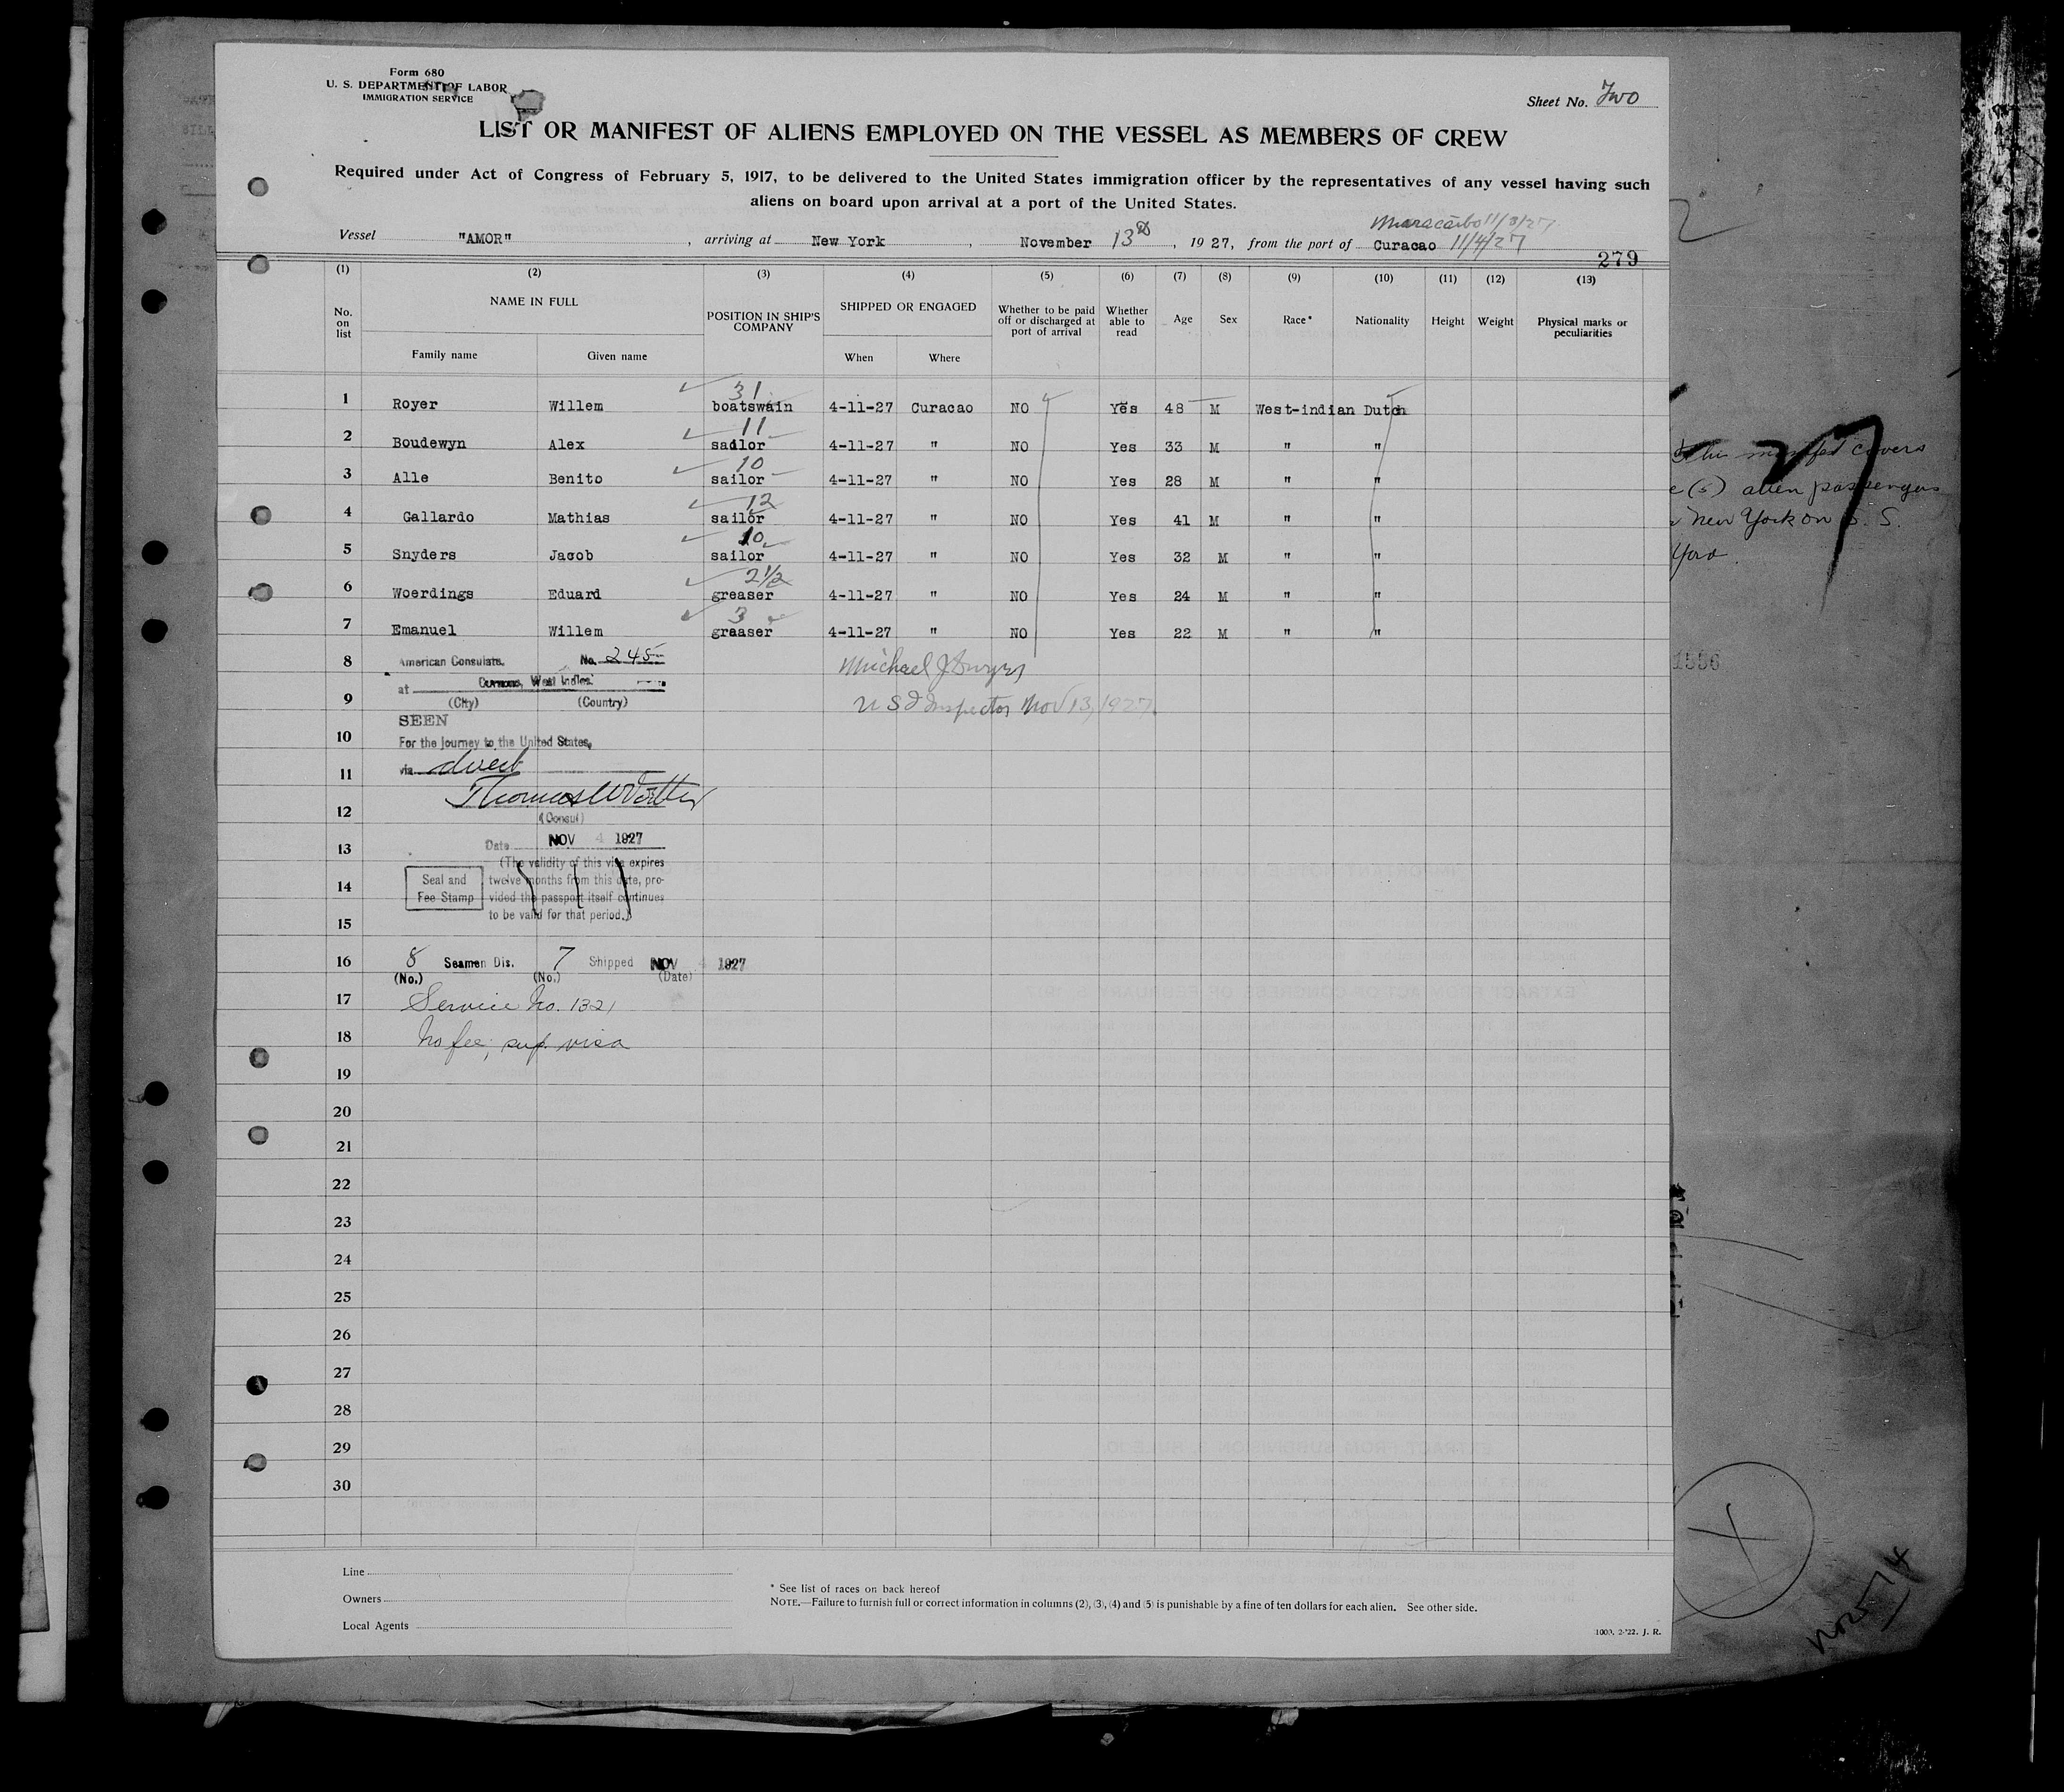 Form 680
U. S. DEPARTMENT OF LABOR
IMMIGRATION SERVICE
Sheet No. Two
LIST OR MANIFEST OF ALIENS EMPLOYED ON THE VESSEL AS MEMBERS OF CREW
Required under Act of Congress of February 5, 1917, to be delivered to the United States immigration officer by the representatives of any vessel having such
aliens on board upon arrival at a port of the United States.
Maracaibo 11/3/27
Vessel "AMOR", arriving at New York, November 13th, 1927, from the port of Curacao 11/4/27
279
(1) (2) (3) (4) (5) (6) (7) (8) (9) (10) (11) (12) (13)
No. on list NAME IN FULL Family name Given name POSITION IN SHIP'S COMPANY SHIPPED OR ENGAGED When Where Whether to be paid off or discharged at port of arrival Whether able to read Age Sex Race* Nationality Height Weight Physical marks or peculiarities
31
1 Royer Willem boatswain 4-11-27 Curacao NO Yes 48 M West-indian Dutch
11
2 Boudewyn Alex sailor 4-11-27 " NO Yes 33 M " "
10
3 Alle Benito sailor 4-11-27 " NO Yes 28 M " "
12
4 Gallardo Mathias sailor 4-11-27 " NO Yes 41 M " "
10
5 Snyders Jacob sailor 4-11-27 " NO Yes 32 M " "
2 1/2
6 Woerdings Eduard greaser 4-11-27 " NO Yes 24 M " "
3
7 Emanuel Willem greaser 4-11-27 " NO Yes 22 M " "
8 American Consulate, No. 245 Michael J
at Curacao, West Indies.
9 (City) (Country) U S I Inspector Nov 13, 1927
SEEN
10 For the journey to the United States,
11 via direct
12 Thomas W
(Consul)
13 Date NOV 4 1927
(The validity of this visa expires
14 Seal and Fee Stamp twelve months from this date, pro-
vided the passport itself continues
15 to be valid for that period.)
16 8 Seamen Dis. 7 Shipped NOV 4 1927
(No.) (No.) (Date)
17 Service No. 1321
18 No fee; sup. visa
19
20
21
22
23
24
25
26
27
28
29
30
Line
Owners
Local Agents
* See list of races on back hereof
NOTE.—Failure to furnish full or correct information in columns (2), (3), (4) and (5) is punishable by a fine of ten dollars for each alien. See other side.
1000. 2-'22. J. R.
This manifest covers
(5) alien passengers
New York on S. S.
1556
X
Nov 14